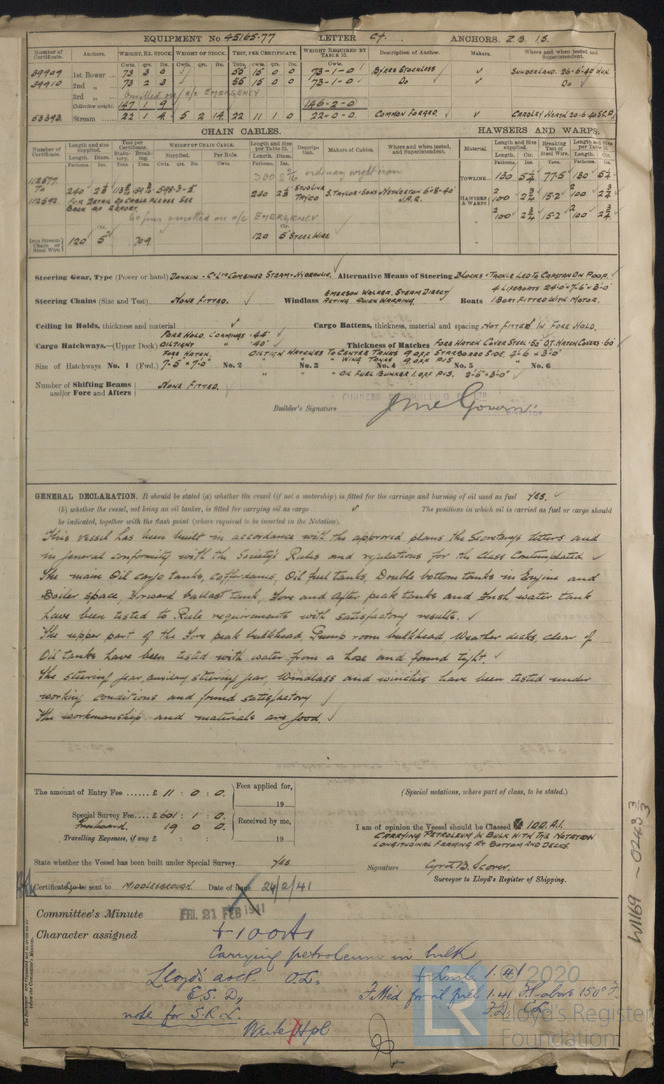 EQUIPMENT No 45165.77 LETTER C†. ANCHORS. 2 B 1 S.
Number of Certificate. Anchors. WEIGHT, EX. STOCK. WEIGHT OF STOCK. TEST, PER CERTIFICATE. WEIGHT REQUIRED BY TABLE 53. Description of Anchor. Makers. Where and when tested and Superintendent.
39909 1st Bower 73 3 6 55 15 0 0 73-1-0 Byers Stockless ✓ Sunderland. 26-6-40
39910 2nd „ 73 2 3 55 15 0 0 73-1-0 Do ✓ Do
3rd „ omitted on a/c EMERGENCY
Collective weight. 147 1 9 146-2-0
Stream 22 1 4 5 2 14 22 11 1 0 22-0-0 Common Forged. ✓ Cradley Heath 20-6-40
CHAIN CABLES. HAWSERS AND WARPS.
Number of Certificate. Length and size supplied. Test per Certificate WEIGHT OF CHAIN CABLE. Length and size per Table 53. Description. Makers of Cables. Where and when tested, and Superintendent. Material Length and Size supplied. Breaking Test of Steel Wire. Length and size per Table 53.
300 2 5/16 ordinary wrought iron
TOWLINE 130 5¼ 77·5 130 5¼
112677 To 112692 240 598-3-5 240 S. Taylor & Sons Netherton 6-8-40
HAWSERS & WARPS 2 100 2¾ 15·2 2 100 2¾
FOR DETAIL OF CABLE PLEASE SEE BACK OF REPORT
60 fms omitted on a/c EMERGENCY
2 100 2¾ 15·2 2 100 2¾
Iron Stream Chain or Steel Wire 120 5 70·9 120 5 STEEL WIRE
Steering Gear, Type (Power or hand) Donkin & Co Ltd Combined Steam-Hydraulic. Alternative Means of Steering Blocks & Tackle led to Capstan on Poop.
Steering Chains (Size and Test). None Fitted. Windlass Emerson Walker Steam Direct Acting Quick Warping. Boats 4 Lifeboats 24'·0"×7'·6"×3'·0" 1 Boat fitted with Motor.
Ceiling in Holds, thickness and material ✓ Cargo Battens, thickness, material and spacing Not fitted in Fore Hold.
Cargo Hatchways.—(Upper Deck) Fore Hold. Coamings ·44" Oiltight „ ·40" Thickness of Hatches Fore Hatch Cover Steel ·50" O.T. Hatch Covers ·60
Size of Hatchways No. 1 (Fwd.) Fore Hatch 7'-5" × 7'-0" No. 2 No. 3 No. 4 No. 5 No. 6
Oiltight Hatches To Centre Tanks 9 off Starboard Side 2'-6" × 3'-0"
„ „ „ Wing Tanks 9 off P&S
„ „ Oil Fuel Bunker 1 off P&S. 2'-6" × 3'-0"
Number of Shifting Beams and/or Fore and Afters None Fitted.
Builder's Signature
GENERAL DECLARATION. It should be stated (a) whether the vessel (if not a motorship) is fitted for the carriage and burning of oil used as fuel yes.
(b) whether the vessel, not being an oil tanker, is fitted for carrying oil as cargo ✓ The positions in which oil is carried as fuel or cargo should
be indicated, together with the flash point (where required to be inserted in the Notation).
This vessel has been built in accordance with the approved plans the Secretarys letters and
in general conformity with the Society's Rules and regulations for the Class Contemplated ✓
The main Oil cargo tanks, Cofferdams, Oil fuel tanks, Double bottom tanks in Engine and
Boiler space, Forward ballast tank, Fore and After peak tanks and Fresh water tank
have been tested to Rule requirements with Satisfactory results. ✓
The upper part of the Fore peak bulkhead, Pump room bulkhead Weather decks, clear of
Oil tanks have been tested with water from a hose and found tight. ✓
The steering gear, auxiliary steering gear, windlass and winches have been tested under
working conditions and found satisfactory ✓
The workmanship and materials are good ✓
The amount of Entry Fee ......£ 11 : 0 : 0. Fees applied for, 19
(Special notations, where part of class, to be stated.)
Special Survey Fee....£ 601 : 1 : 0 Received by me,
Freeboard. 19 0 0 19
Travelling Expenses, if any £ : :
I am of opinion the Vessel should be Classed ✠ 100.A.1.
CARRYING PETROLEUM IN BULK WITH THE NOTATION
LONGITUDINAL FRAMING AT BOTTOM AND DECKS.
State whether the Vessel has been built under Special Survey yes
Signature
Surveyor to Lloyd's Register of Shipping.
Certificate to be sent to MIDDLESBROUGH. Date of issue 24/2/41
Committee's Minute FRI. 21 FEB 1941
Character assigned +100A1
Carrying petroleum in bulk
Lloyd's a&cp. O.L. + Lmb 1.41
E.S.D. Fitted for oil fuel 1.41 F.P. above 150° F.
note for S.R.L. F.D. CL
W1169-0243 3/3
© 2020
LR
Lloyd's Register
Foundation